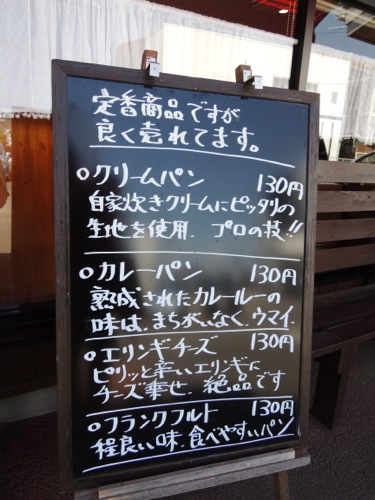 定番商品ですが
良く売れてます。
○クリームパン 130円
自家炊きクリームにピッタリの
生地を使用. プロの技!!
○カレーパン 130円
熟成されたカレールーの
味は.まちがいなく.ウマイ.
○エリンギチーズ 130円
ピリッと辛いエリンギに
チーズ乗せ. 絶品です
○フランクフルト 130円
程良い味.食べやすいパン